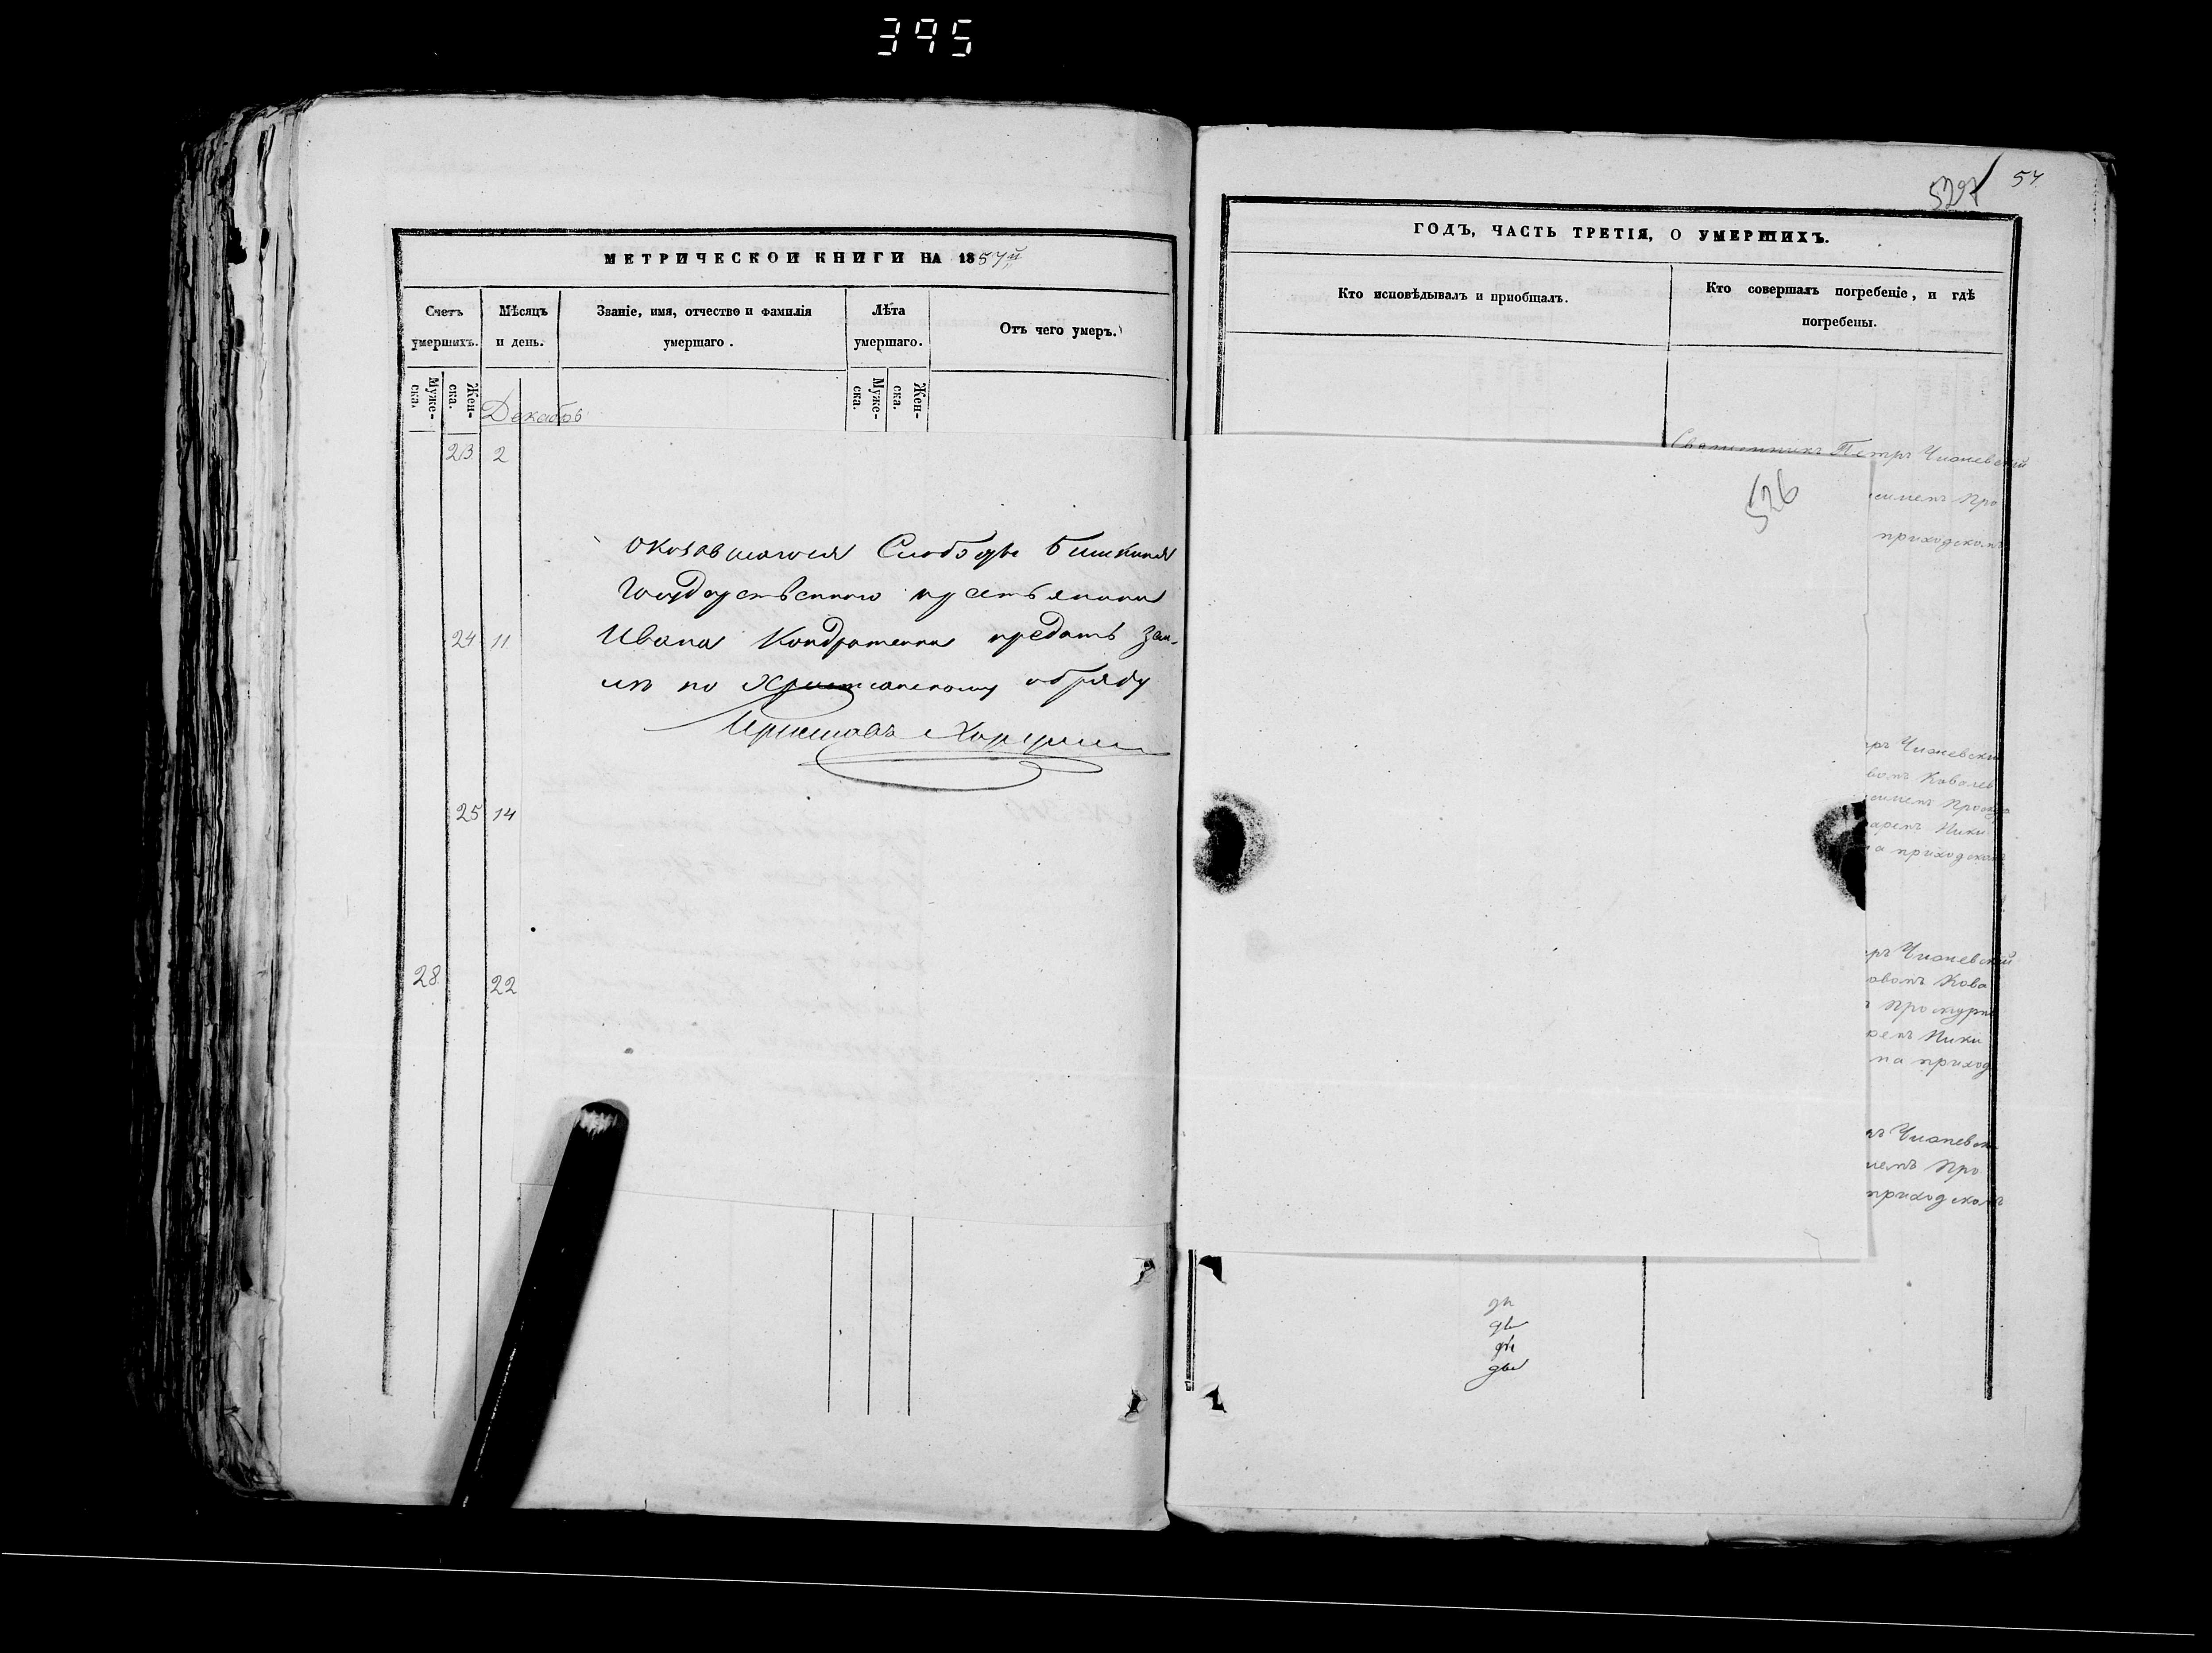 395
МЕТРИЧЕСКОЙ КНИГИ НА 1857й
Счетъ умершихъ.
Муже-ска.
Жен-ска.
Мѣсяцъ и день.
Званіе, имя, отчество и фамилія умершаго.
Лѣта умершаго.
Муже-ска.
Жен-ска.
Отъ чего умеръ.
Декабрь
23 2
24 11
25 14
28 22
оказавшагося Слободы Бишкиня
Государственнаго крестьянина
Ивана Кондратенка предать зем-
лѣ по Христіанскому обряду
527 57
ГОДЪ, ЧАСТЬ ТРЕТІЯ, О УМЕРШИХЪ.
Кто исповѣдывалъ и пріобщалъ.
Кто совершалъ погребеніе, и гдѣ погребены.
Священникъ Петръ Чианевский
526
симемъ Про
приходскомъ
тръ Чианевски
вомъ Ковалев
симемъ Проску
аремъ Ники
на приходском
тръ Чианевский
овомъ Кова
Проскурн
ремъ Ники
на приход
Чианевск
Про
приходскомъ